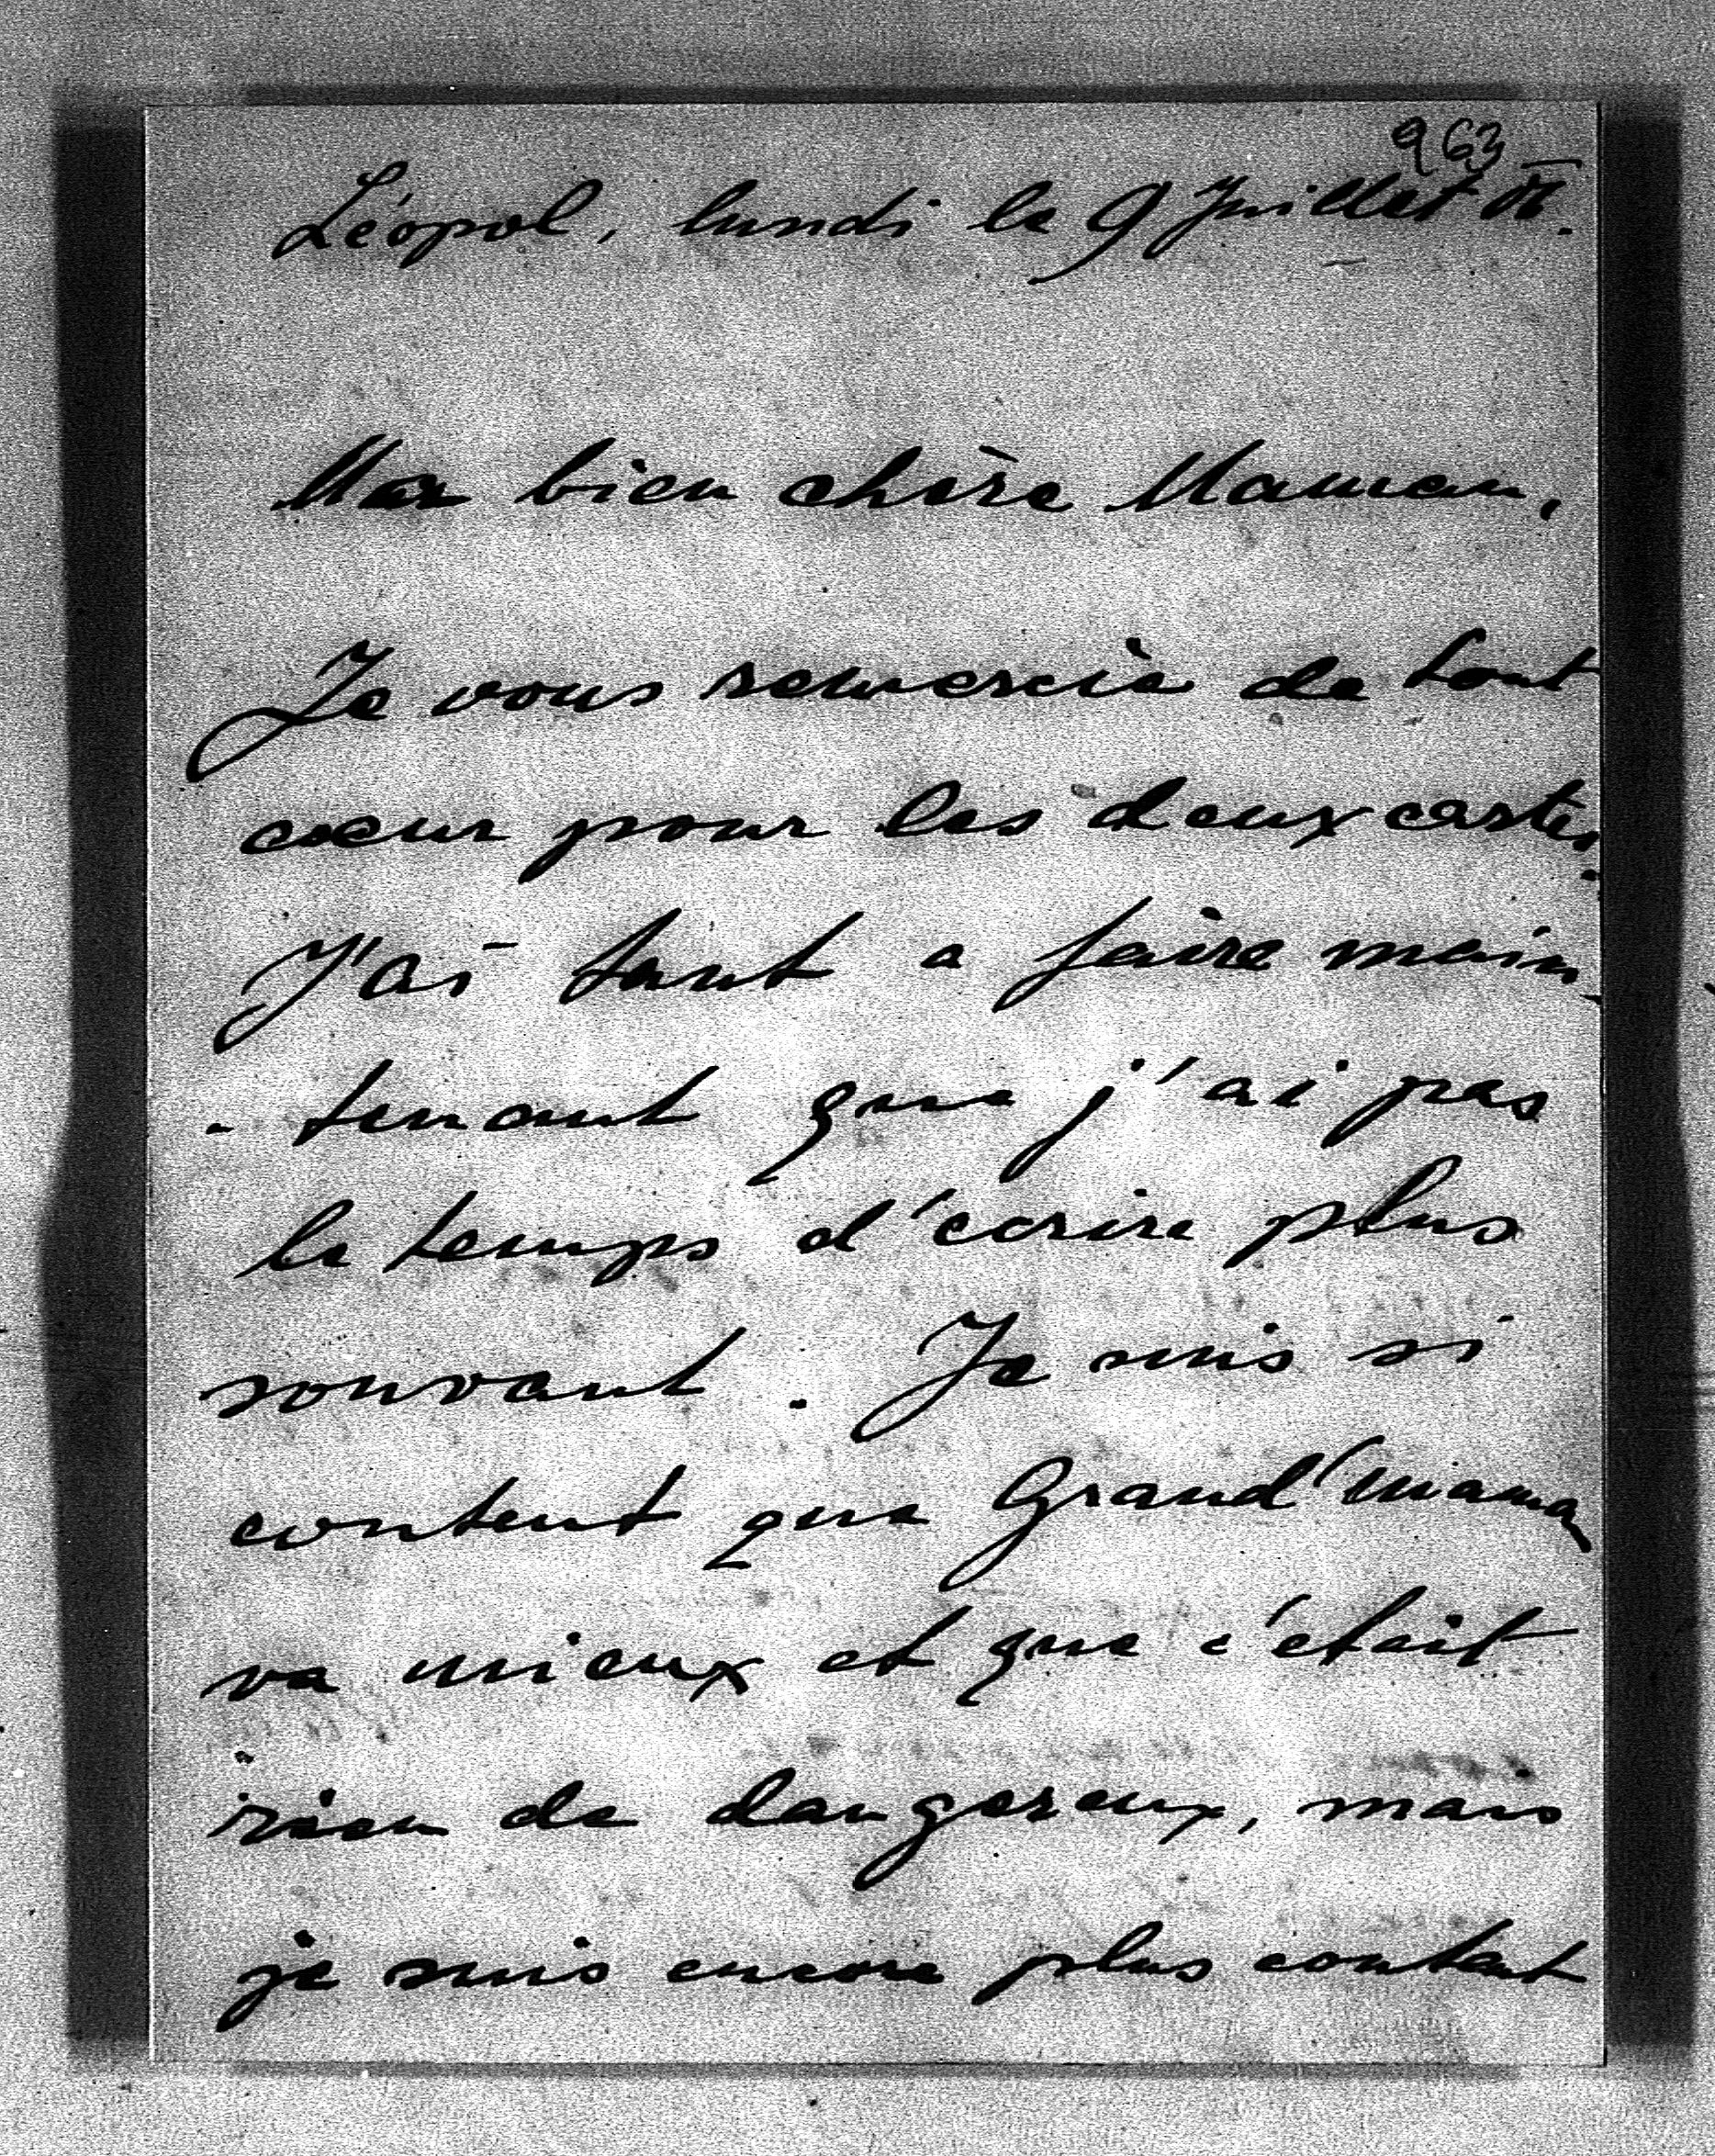 963
Léopol, lundi le 9 Juillet 06.
Ma bien chère Maman,
Je vous remercie de tout
coeur pour les deux cartes.
J'ai tant a faire main-
- tenant que j'ai pas
le temps d'écrire plus
souvant. Je suis si
content que Grand'maman
va mieux et que c'était
rien de dangereux, mais
je suis encore plus content